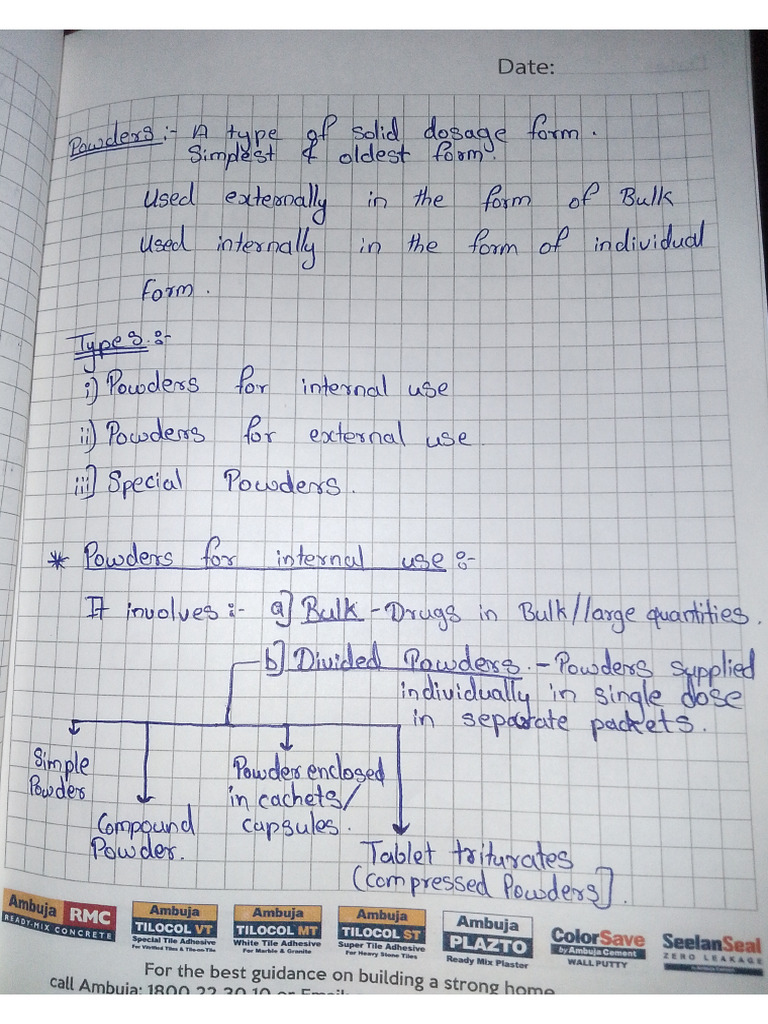 Date:
Powders :- A type of solid dosage form.
Simplest & oldest form.
Used externally in the form of Bulk
Used internally in the form of individual
form.
Types :-
i) Powders for internal use
ii) Powders for external use.
iii) Special Powders.
* Powders for internal use :-
It involves :- a) Bulk - Drugs in Bulk/large quantities.
b) Divided Powders. - Powders supplied
individually in single dose
in separate packets.
Simple
Powder
Compound
Powder.
Powder enclosed
in cachets/
capsules.
Tablet triturates
(compressed Powders).
Ambuja RMC
READY-MIX CONCRETE
Ambuja
TILOCOL VT
Special Tile Adhesive
For Vitrified Tiles & Tile-on-Tile
Ambuja
TILOCOL MT
White Tile Adhesive
For Marble & Granite
Ambuja
TILOCOL ST
Super Tile Adhesive
For Heavy Stone Tiles
Ambuja
PLAZTO
Ready Mix Plaster
ColorSave
by Ambuja Cement
WALL PUTTY
SeelanSeal
ZERO LEAKAGE
For the best guidance on building a strong home
call Ambuja: 1800 22 30 10 or Email: